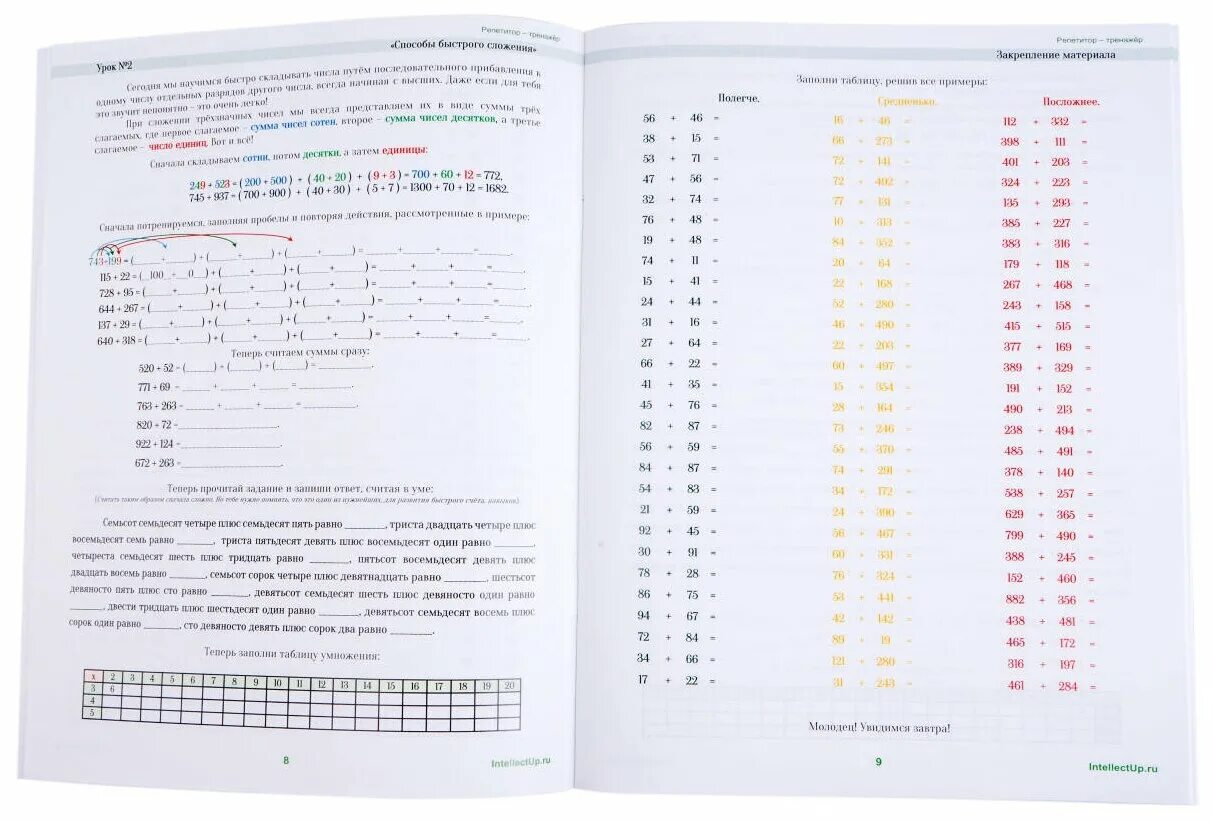 Репетитор – тренажёр
Урок №2
«Способы быстрого сложения»
Сегодня мы научимся быстро складывать числа путём последовательного прибавления к
одному числу отдельных разрядов другого числа, всегда начиная с высших. Даже если для тебя
это звучит непонятно – это очень легко!
При сложении трёхзначных чисел мы всегда представляем их в виде суммы трёх
слагаемых, где первое слагаемое – сумма чисел сотен, второе – сумма чисел десятков, а третье
слагаемое – число единиц. Вот и всё!
Сначала складываем сотни, потом десятки, а затем единицы:
249 + 523 = (200 + 500) + (40 + 20) + (9 + 3) = 700 + 60 + 12 = 772,
745 + 937 = (700 + 900) + (40 + 30) + (5 + 7) = 1300 + 70 + 12 = 1682.
Сначала потренируемся, заполняя пробелы и повторяя действия, рассмотренные в примере:
743+199 = (____+____) + (____+____) + (____+____) = ____+____+____=____.
115 + 22 = (_100_+__0_) + (____+____) + (____+____) = ____+____+____=____.
728 + 95 = (____+____) + (____+____) + (____+____) = ____+____+____=____.
644 + 267 = (____+____) + (____+____) + (____+____) = ____+____+____=____.
137 + 29 = (____+____) + (____+____) + (____+____) = ____+____+____=____.
640 + 318 = (____+____) + (____+____) + (____+____) = ____+____+____=____.
Теперь считаем суммы сразу:
520 + 52 = (_____) + (_____) + (_____) = ________.
771 + 69 = _____ + _____ + _____ = ________.
763 + 263 = _____ + _____ + _____ = ________.
820 + 72 = ______________.
922 + 124 = ______________.
672 + 263 = ______________.
Теперь прочитай задание и запиши ответ, считая в уме:
(Считать таким образом сначала сложно. Но тебе нужно помнить, что это один из нужнейших, для развития быстрого счёта, навыков).
Семьсот семьдесят четыре плюс семьдесят пять равно _______, триста двадцать четыре плюс
восемьдесят семь равно _______, триста пятьдесят девять плюс восемьдесят один равно _______,
четыреста семьдесят шесть плюс тридцать равно _______, пятьсот восемьдесят девять плюс
двадцать восемь равно _______, семьсот сорок четыре плюс девятнадцать равно _______, шестьсот
девяносто пять плюс сто равно _______, девятьсот семьдесят шесть плюс девяносто один равно
_______, двести тридцать плюс шестьдесят один равно _______, девятьсот семьдесят восемь плюс
сорок один равно _______, сто девяносто девять плюс сорок два равно _______.
Теперь заполни таблицу умножения:
x 2 3 4 5 6 7 8 9 10 11 12 13 14 15 16 17 18 19 20
3 6
4
5
8
IntellectUp.ru
Репетитор – тренажёр
Закрепление материала
Заполни таблицу, решив все примеры:
Полегче. Средненько. Посложнее.
56 + 46 = 16 + 46 = 112 + 332 =
38 + 15 = 66 + 273 = 398 + 111 =
53 + 71 = 72 + 141 = 401 + 203 =
47 + 56 = 72 + 492 = 324 + 223 =
32 + 74 = 77 + 131 = 135 + 293 =
76 + 48 = 10 + 313 = 385 + 227 =
19 + 48 = 84 + 352 = 383 + 316 =
74 + 11 = 20 + 64 = 179 + 118 =
15 + 41 = 22 + 168 = 267 + 468 =
24 + 44 = 52 + 280 = 243 + 158 =
31 + 16 = 46 + 490 = 415 + 515 =
27 + 64 = 22 + 203 = 377 + 169 =
66 + 22 = 60 + 497 = 389 + 329 =
41 + 35 = 15 + 354 = 191 + 152 =
45 + 76 = 28 + 164 = 490 + 213 =
82 + 87 = 73 + 246 = 238 + 494 =
56 + 59 = 55 + 370 = 485 + 491 =
84 + 87 = 74 + 291 = 378 + 140 =
54 + 83 = 34 + 172 = 538 + 257 =
21 + 59 = 24 + 390 = 629 + 365 =
92 + 45 = 56 + 467 = 799 + 490 =
30 + 91 = 60 + 331 = 388 + 245 =
78 + 28 = 76 + 324 = 152 + 460 =
86 + 75 = 53 + 441 = 882 + 356 =
94 + 67 = 42 + 142 = 438 + 481 =
72 + 84 = 89 + 19 = 465 + 172 =
34 + 66 = 121 + 280 = 316 + 197 =
17 + 22 = 31 + 243 = 461 + 284 =
Молодец! Увидимся завтра!
9
IntellectUp.ru